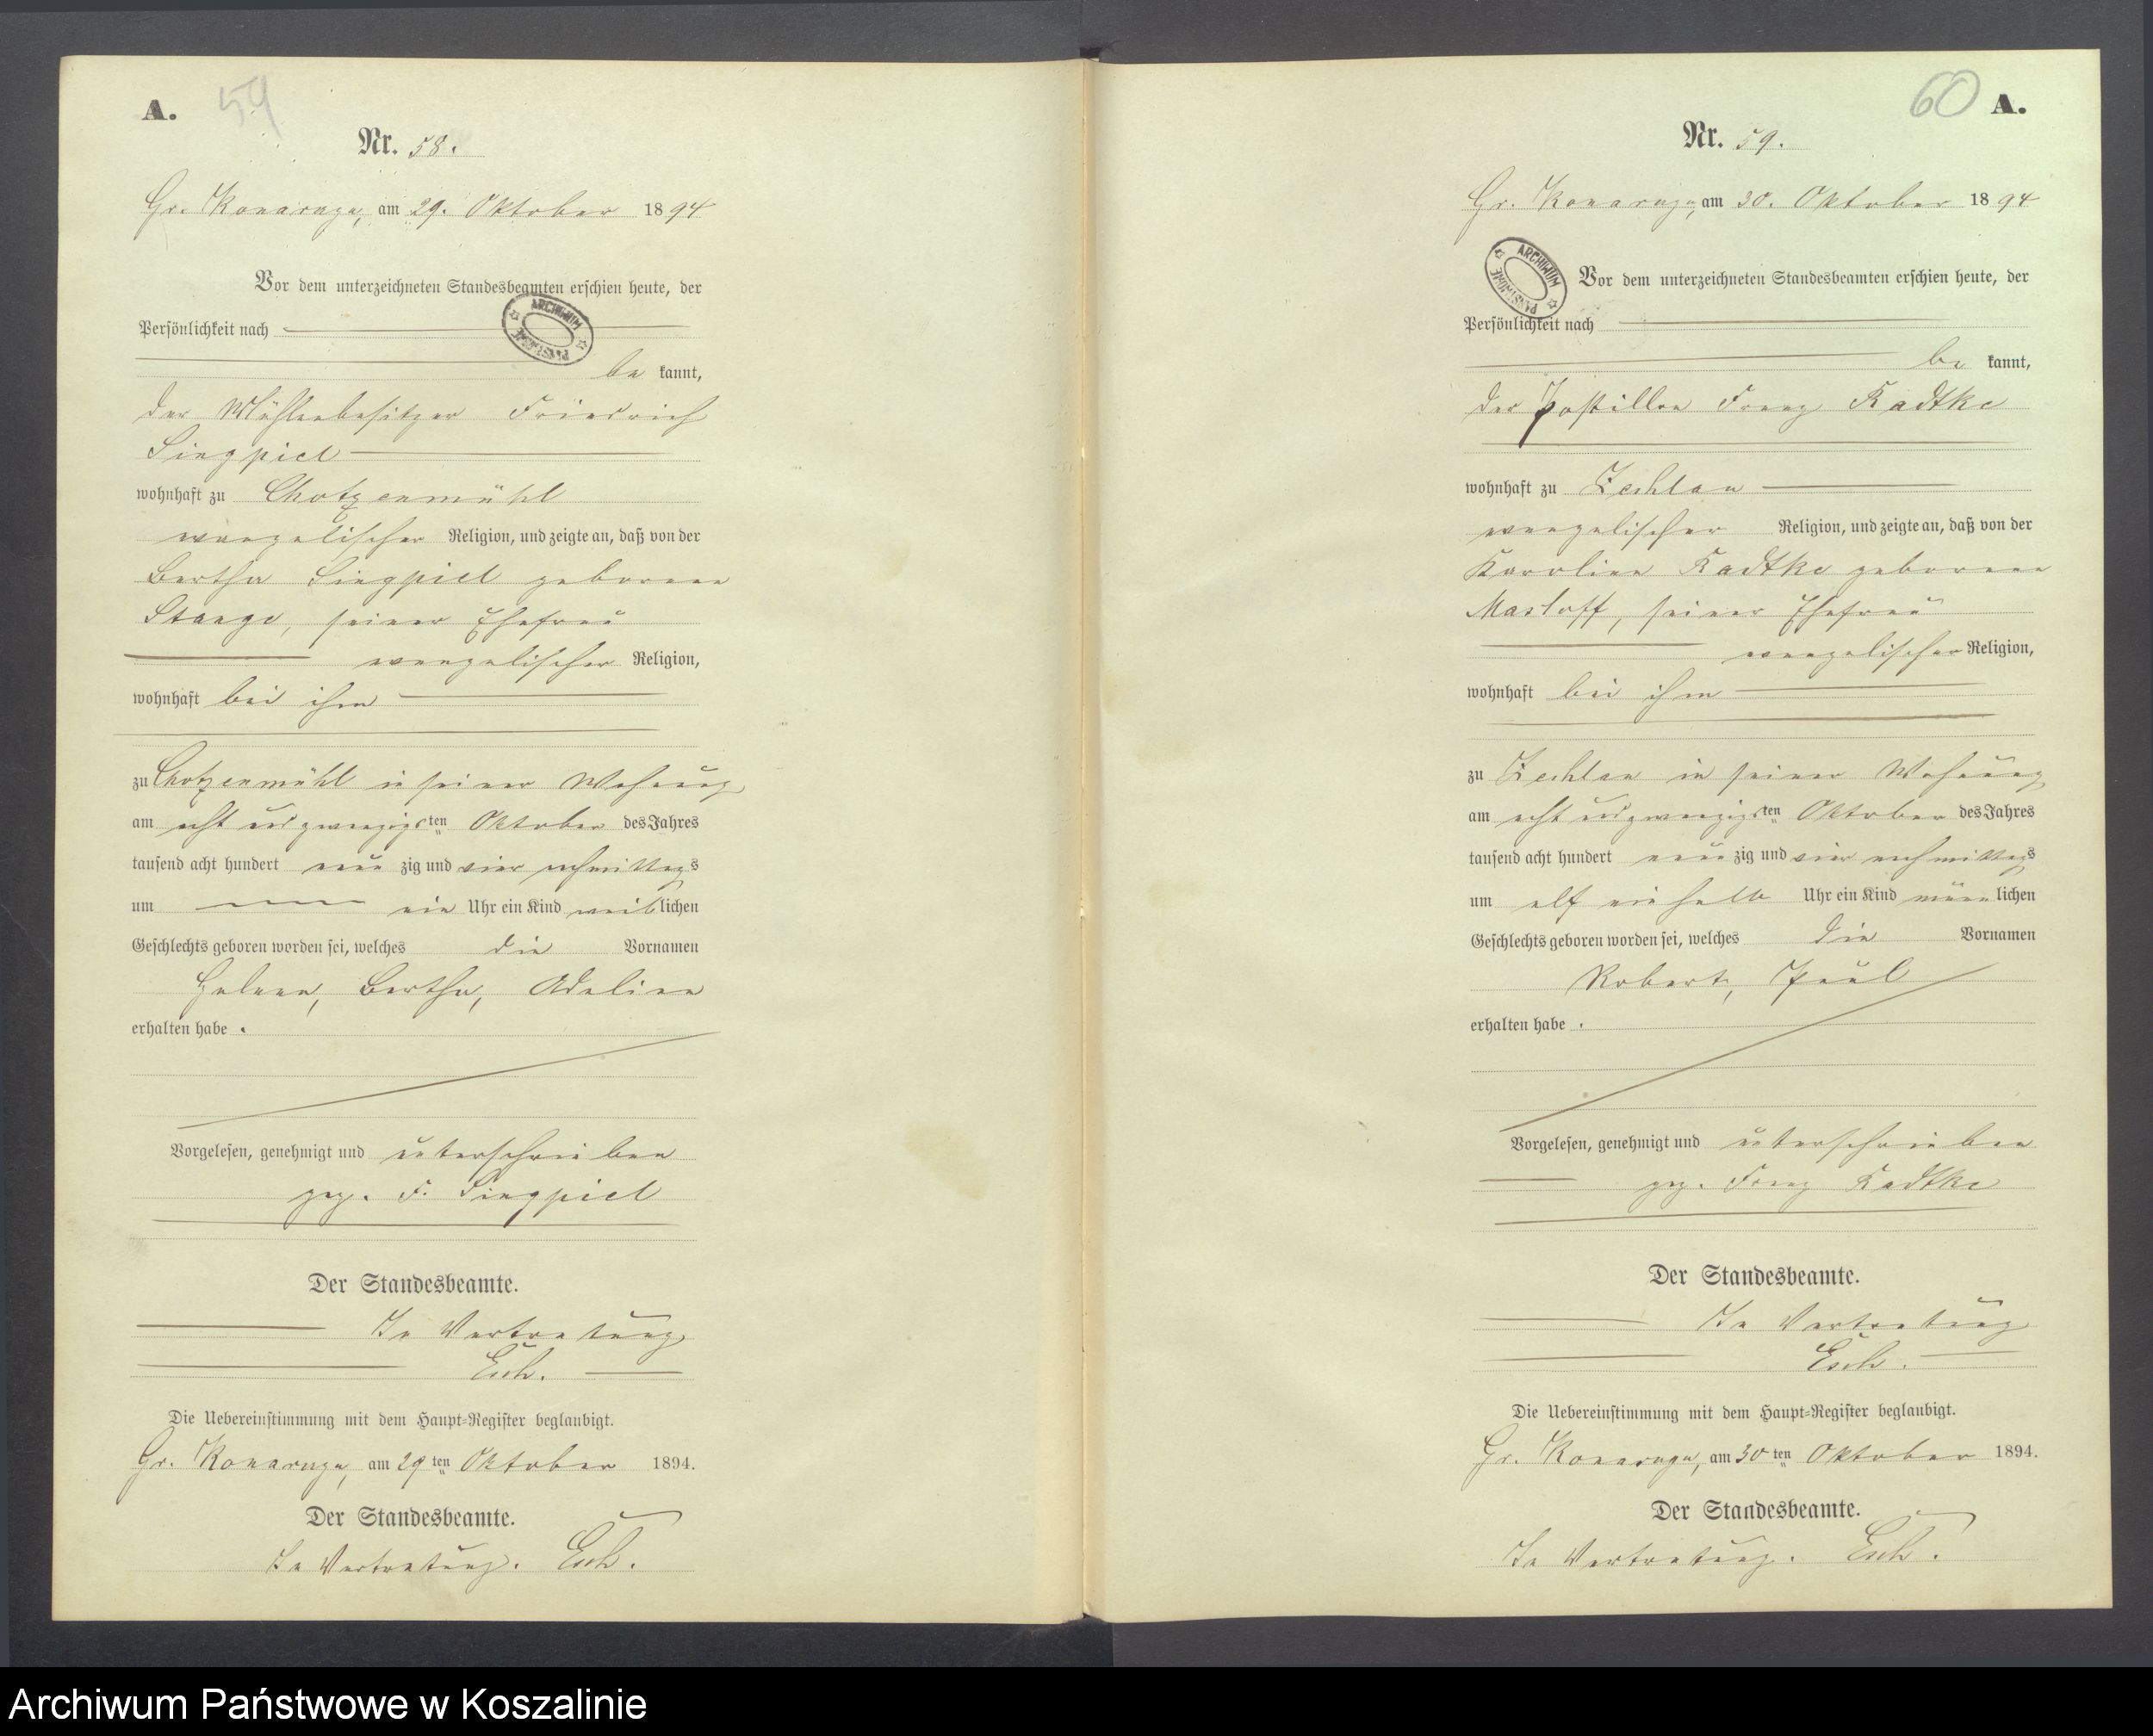 A. 59
Nr. 58.
Gr. Konarczyn, am 29. Oktober 1894
Vor dem unterzeichneten Standesbeamten erschien heute, der
Persönlichkeit nach
be kannt,
der Mühlenbesitzer Friedrich
Singpiel
wohnhaft zu Chotzenmühl
evangelischer Religion, und zeigte an, daß von der
Bertha Singpiel geborenen
Stange, seiner Ehefrau
evangelischer Religion,
wohnhaft bei ihm
zu Chotzenmühl in seiner Wohnung
am acht und zwanzigsten Oktober des Jahres
tausend acht hundert neunzig und vier nachmittags
um ein Uhr ein Kind weiblichen
Geschlechts geboren worden sei, welches die Vornamen
Helene, Bertha, Adeline
erhalten habe.
Vorgelesen, genehmigt und unterschrieben
gez. F. Singpiel
Der Standesbeamte.
In Vertretung
Esch.
Die Uebereinstimmung mit dem Haupt-Register beglaubigt.
Gr. Konarczyn, am 29ten Oktober 1894.
Der Standesbeamte.
In Vertretung. Esch.
60 A.
Nr. 59.
Gr. Konarczyn, am 30. Oktober 1894
ARCHIWUM PAŃSTWOWE
Vor dem unterzeichneten Standesbeamten erschien heute, der
Persönlichkeit nach
be kannt,
der Postillon Franz Radtke
wohnhaft zu Zechlau
evangelischer Religion, und zeigte an, daß von der
Karoline Radtke geborenen
Masloff, seiner Ehefrau
evangelischer Religion,
wohnhaft bei ihm
zu Zechlau in seiner Wohnung
am acht und zwanzigsten Oktober des Jahres
tausend acht hundert neunzig und vier nachmittags
um elf ein halb Uhr ein Kind männlichen
Geschlechts geboren worden sei, welches die Vornamen
Robert, Paul
erhalten habe.
Vorgelesen, genehmigt und unterschrieben
gez. Franz Radtke
Der Standesbeamte.
In Vertretung
Esch.
Die Uebereinstimmung mit dem Haupt-Register beglaubigt.
Gr. Konarczyn, am 30ten Oktober 1894.
Der Standesbeamte.
In Vertretung. Esch.
Archiwum Państwowe w Koszalinie